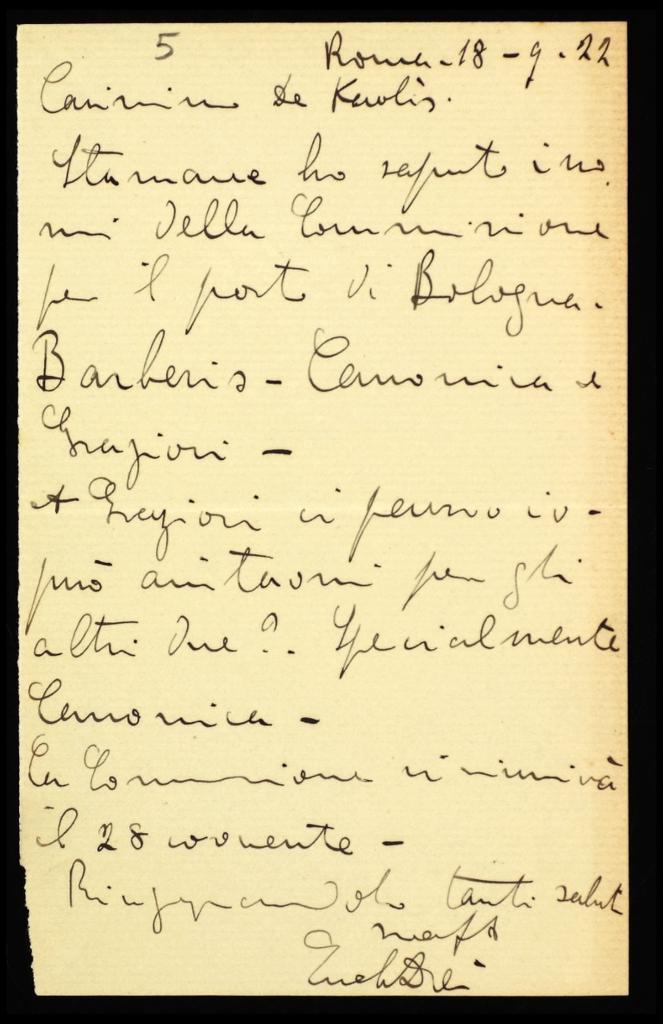 5
Roma - 18 - 9 - 22
Carissimo De Karolis.
Stamane ho saputo i no
mi della Commissione
per il posto di Bologna.
Barberis - Canonica e
Graziosi -
A Graziosi ci penso io -
può aiutarmi per gli
altri due?. Specialmente
Canonica -
La Commissione si riunirà
il 28 corrente -
Ringraziandolo tanti saluti
Ercole Drei